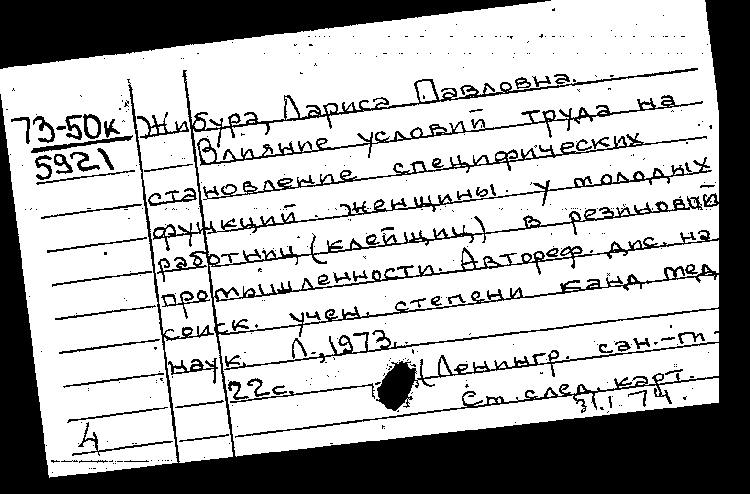 73-50к
5921
Жибура, Лариса Павловна.
Влияние условий труда на
становление специфических
функций женщины у молодых
работниц (клейщиц) в резиновой
промышленности. Автореф. дис. на
соиск. учен. степени канд. мед
наук. Л., 1973.
22с. (Ленингр. сан.-ги-
Ст. след. карт.
31.I 74.
4